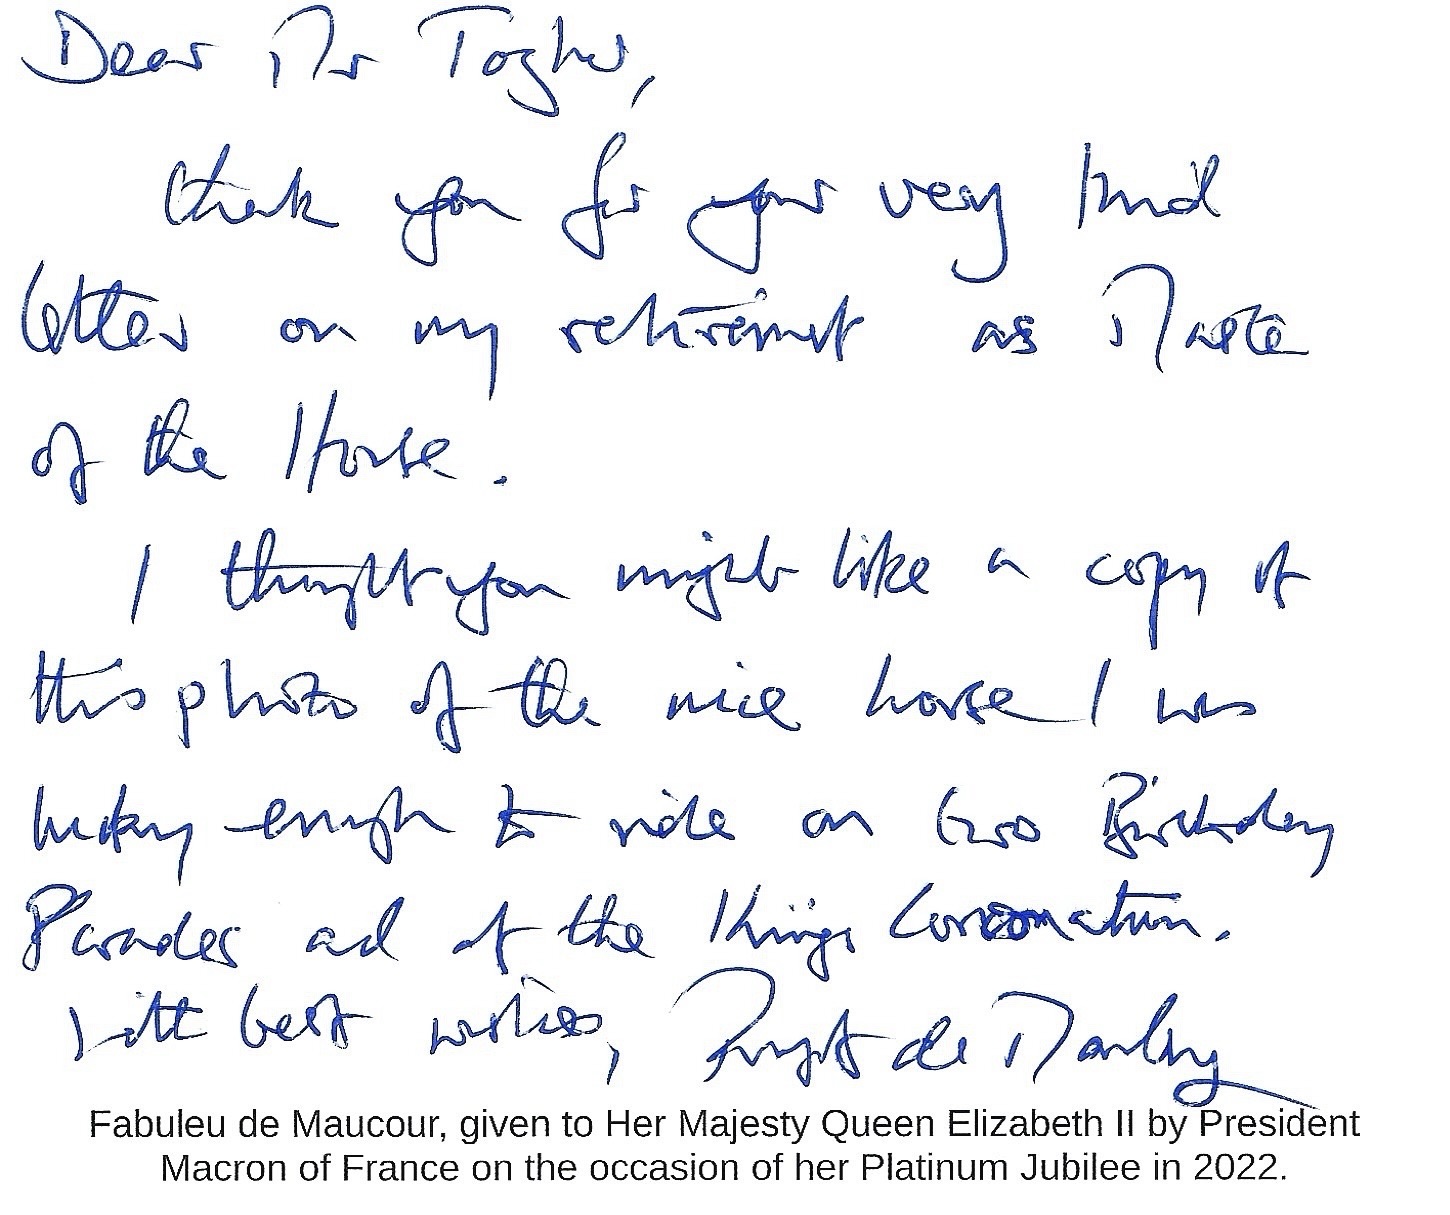 Dear Mr
thank you for your very kind
letter on my retirement as Master
of the Horse.
I thought you might like a copy of
this photo of the nice horse I was
lucky enough to ride on two Birthday
Parades and at the King's Coronation.
With best wishes, de
Fabuleu de Maucour, given to Her Majesty Queen Elizabeth II by President
Macron of France on the occasion of her Platinum Jubilee in 2022.